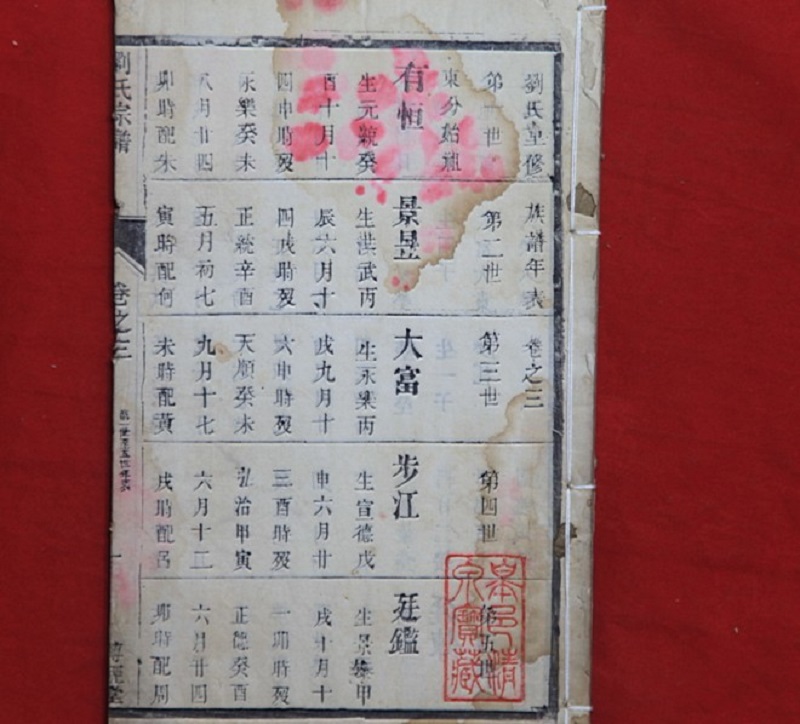 劉氏重修族譜年表 卷之三
第一世
東分始祖
有恒
生元統癸
酉十月十
四申時歿
永樂癸未
八月廿四
卯時配朱
第二世
景昱
生洪武丙
辰六月十
四戌時歿
正統辛酉
五月初七
寅時配何
第三世
大富
生永樂丙
戌九月十
六申時歿
天順癸未
九月十七
未時配黃
第四世
步江
生宣德戊
申六月廿
三酉時歿
弘治甲寅
六月十二
戌時配呂
第五世
廷鑑
生景泰甲
戌十月十
一卯時歿
正德癸酉
六月廿四
卯時配周
劉氏宗譜
卷之三
第一世至五世年表
一
堂